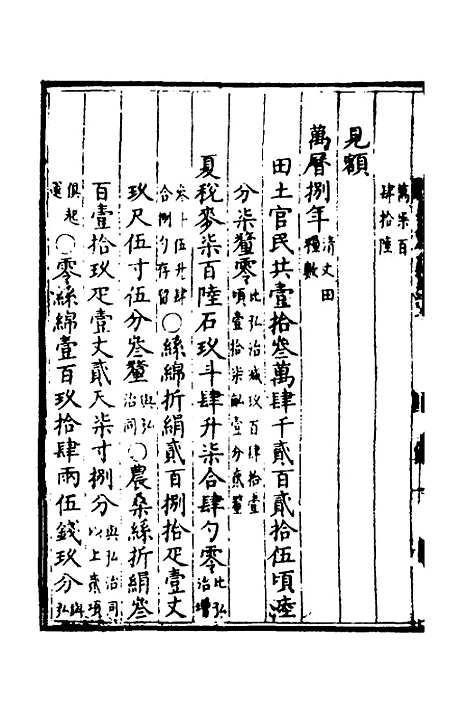 萬柒百
肆拾陸
見額
萬曆捌年清丈田
種數
田土官民共壹拾叁萬肆千貳百貳拾伍頃陸
分柒釐零比弘治減玖百肆拾壹
頃壹拾柒畝壹分貳釐
夏稅麥柒百陸石玖斗肆升柒合肆勺零比弘
治增
叁斗伍升肆
合捌勺存留○絲綿折絹貳百捌拾疋壹丈
玖尺伍寸伍分叁釐與弘
治同○農桑絲折絹叁
百壹拾玖疋壹丈貳尺柒寸捌分與弘治同
以上貳項
俱起
運○零絲綿壹百玖拾肆兩伍錢玖分與
弘